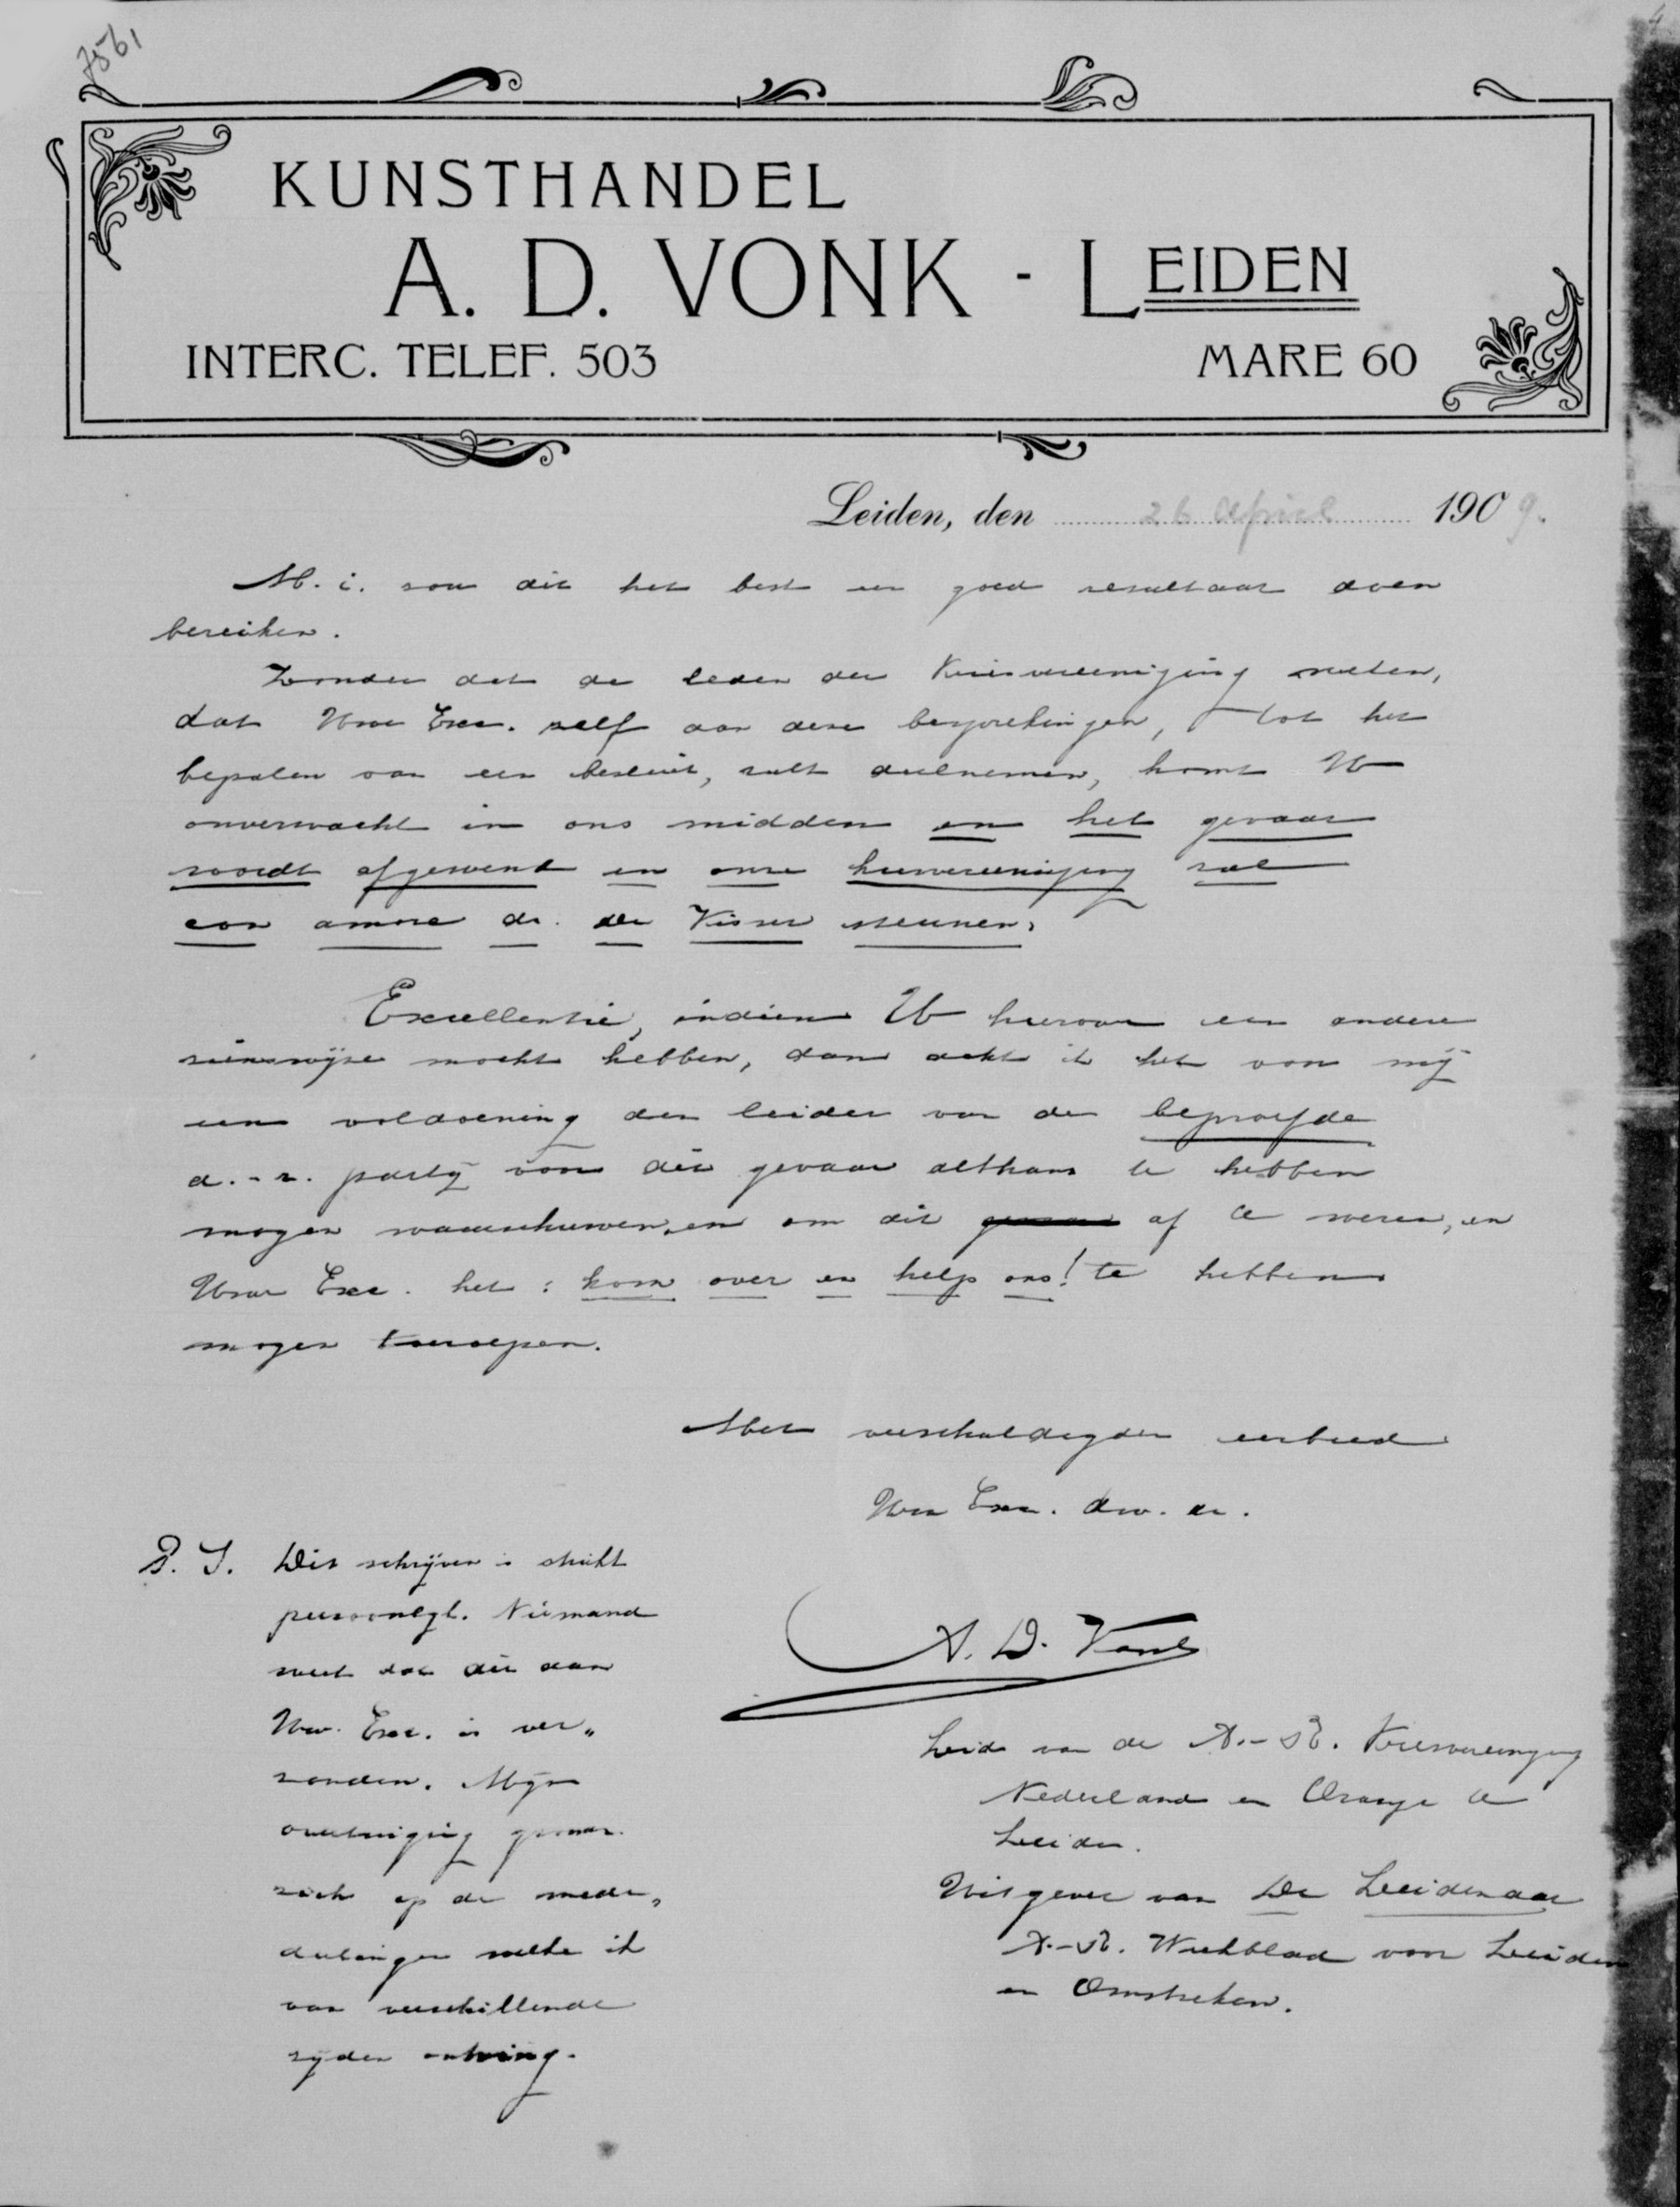 7561
4
KUNSTHANDEL
A. D. VONK - LEIDEN
INTERC. TELEF. 503
MARE 60
Leiden, den 26 April 1909.
M. i. zou dit het best een goed resultaat doen
bereiken.
Zonder dat de leden der Kiesvereeniging weten,
dat Uwe Exc. zelf aan deze besprekingen, tot het
bepalen van een besluit, zult deelnemen, komt U
onverwacht in ons midden en het gevaar
wordt afgewend en onze kiesvereeniging zal
con amore dr. de Visser steunen.
Excellentie, indien U hierover een andere
zienswijze mocht hebben, dan acht ik het voor mij
een voldoening den leider van de beproefde
a.-r. partij voor dit gevaar althans te hebben
mogen waarschuwen, en om dit af te weren, en
Uwe Exc. het: kom over en help ons! te hebben
mogen toeroepen.
Met verschuldigden eerbied
Uwe Exc. dw. dr.
A. D. Vonk
Leid van de A.-R. Kiesvereeniging
Nederland en Oranje te
Leiden.
Uitgever van De Leidenaar
A.-R. Weekblad voor Leiden
en Omstreken.
P. S. Dit schrijven is strikt
persoonlyk. Niemand
weet dat dit aan
Uw. Exc. is ver„
zonden. Mijn
overtuiging
zich op de mede„
deelingen welke ik
van verschillende
zijden ontving.